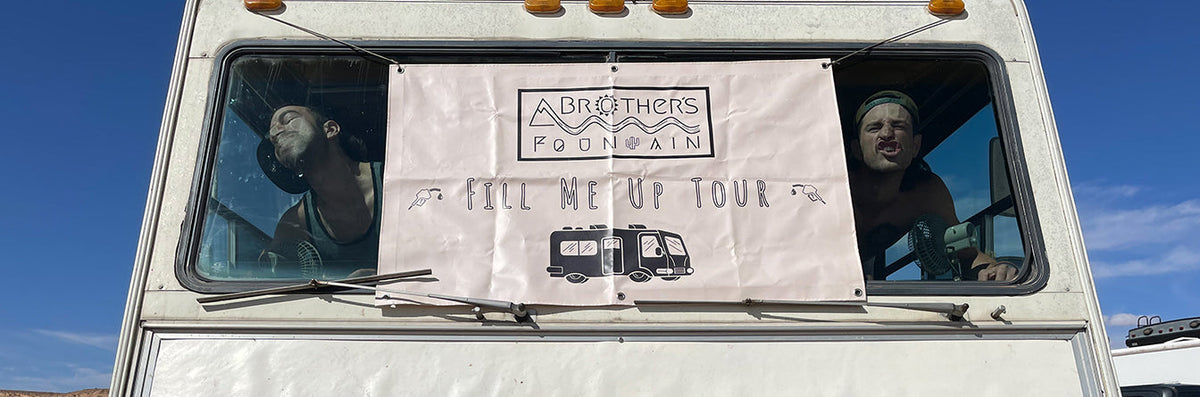 A BROTHER'S
FOUNTAIN
FILL ME UP TOUR